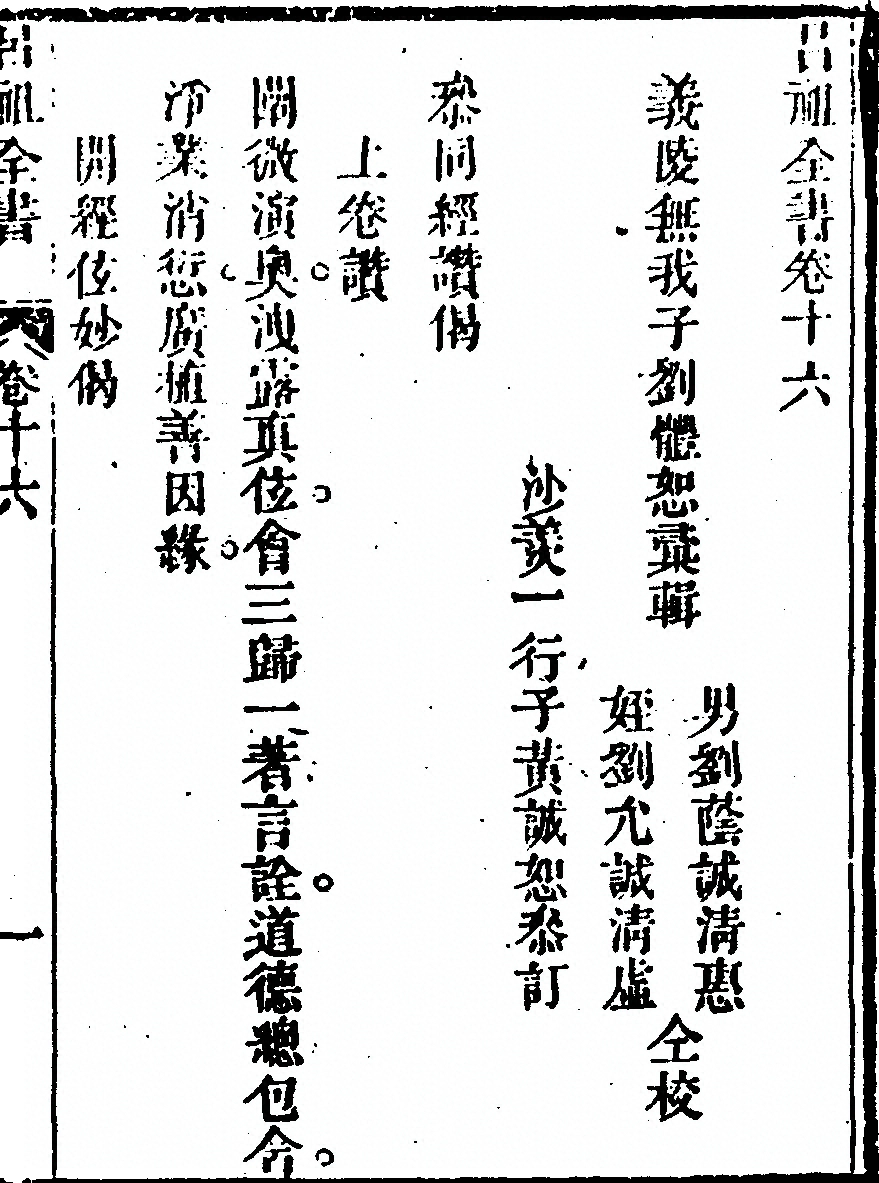 呂祖全書卷十六
義陵無我子劉體恕彚輯
男劉蔭誠清惠
姪劉允誠清虛
仝校
沙羨一行子黃誠恕叅訂
叅同經讚偈
上卷讚
闡微演奥。洩露真伭。會三歸一著言詮。道德總包含。
淨業消愆。廣植善因緣。
開經伭妙偈
呂祖全書 卷十六 一